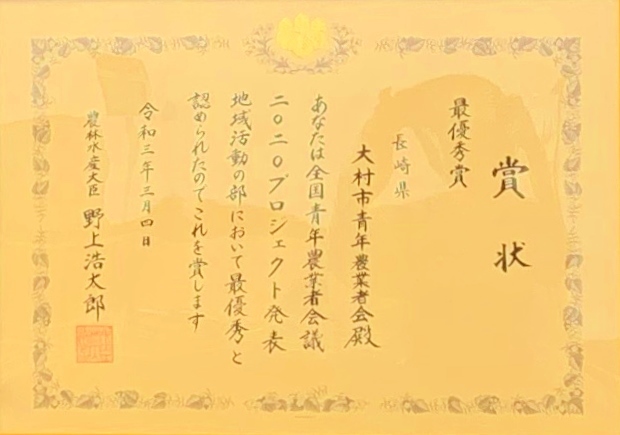 賞状
最優秀賞
長崎県
大村市青年農業者会殿
あなたは全国青年農業者会議
二〇二〇プロジェクト発表
地域活動の部において最優秀と
認められたのでこれを賞します
令和三年三月四日
農林水産大臣 野上浩太郎